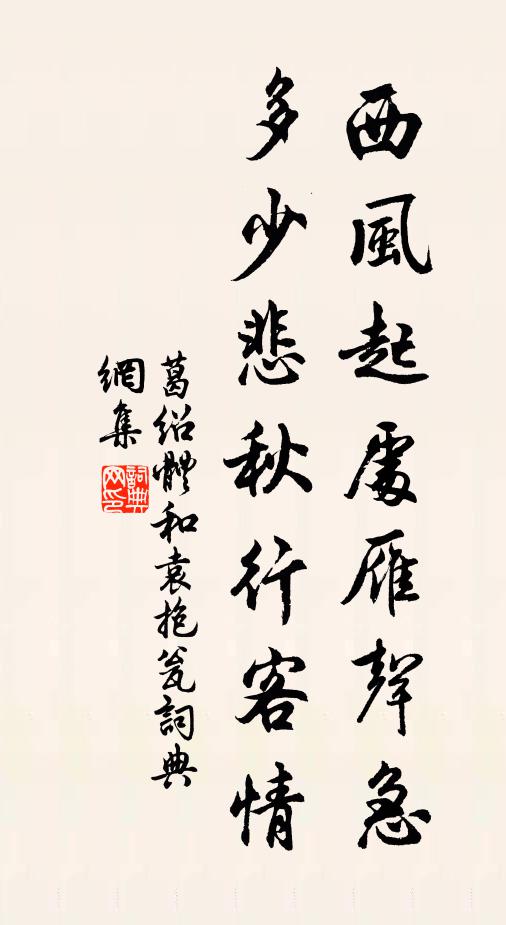 西風起處雁聲急
多少悲秋行客情
葛紹體和袁抱瓮詞典
網集
詞典
网印